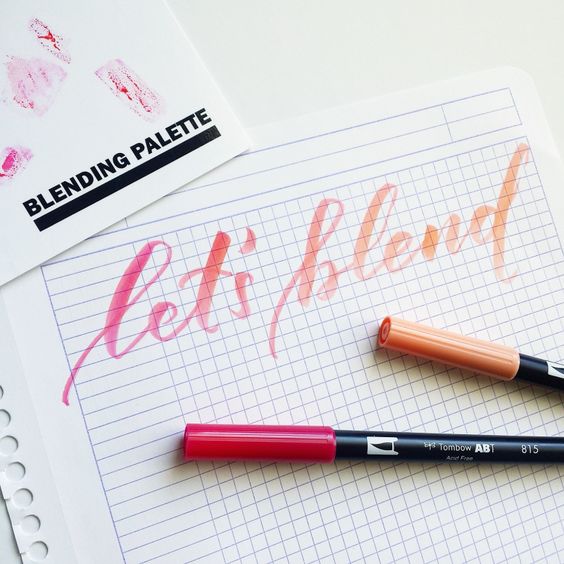 BLENDING PALETTE
let's blend
Tombow ABT 815
Acid Free